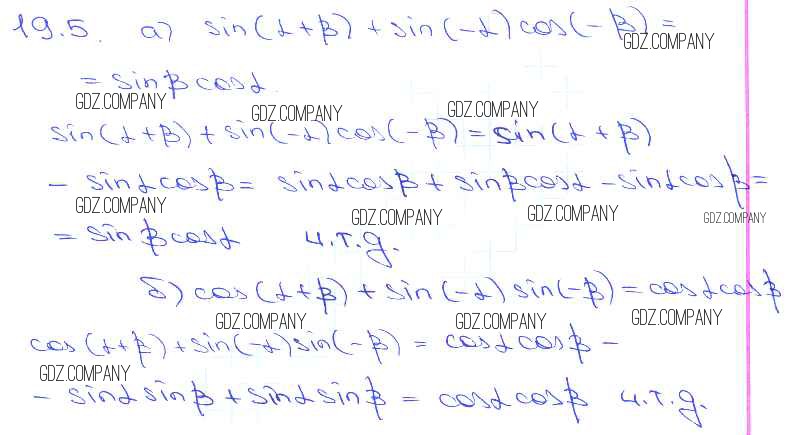 19.5. а) sin(α+β) + sin(-α)cos(-β) =
GDZ.COMPANY
= sinβcosα
GDZ.COMPANY GDZ.COMPANY GDZ.COMPANY
sin(α+β) + sin(-α)cos(-β) = sin(α+β)
- sinαcosβ = sinαcosβ + sinβcosα - sinαcosβ =
GDZ.COMPANY GDZ.COMPANY GDZ.COMPANY GDZ.COMPANY
= sinβcosα ч.т.д.
б) cos(α+β) + sin(-α)sin(-β) = cosαcosβ
GDZ.COMPANY GDZ.COMPANY GDZ.COMPANY
cos(α+β) + sin(-α)sin(-β) = cosαcosβ -
GDZ.COMPANY
- sinαsinβ + sinαsinβ = cosαcosβ ч.т.д.